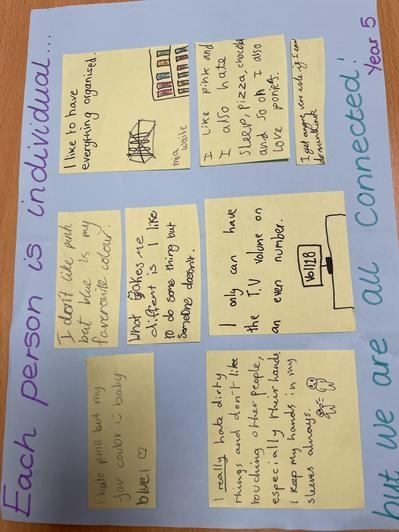 Each person is individual...
I hate pink but my
fav coulor is baby
blue!
I don't like pink
but blue is my
faverouite colour
I like to have
everything organised.
mia waite
What makes me
different is I like
to do some thing but
Someone doesn't.
I really hate dirty
things and don't like
touching other people,
especially their hands,
I keep my hands in my
sleeves always.
I only can have
the T.V volume on
an even number.
I like pink and
I also hate
sleep, pizza, chocolate
and so on I also
love ponies.
I get angry very if I
do sumthink
but we are all connected!
Year 5